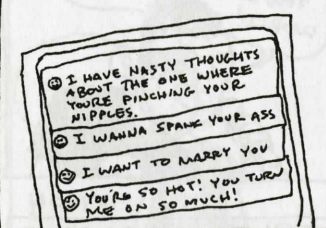 I HAVE NASTY THOUGHTS
ABOUT THE ONE WHERE
YOURE PINCHING YOUR
NIPPLES.
I WANNA SPANK YOUR ASS
I WANT TO MARRY YOU
YOU'RE SO HOT! YOU TURN
ME ON SO MUCH!